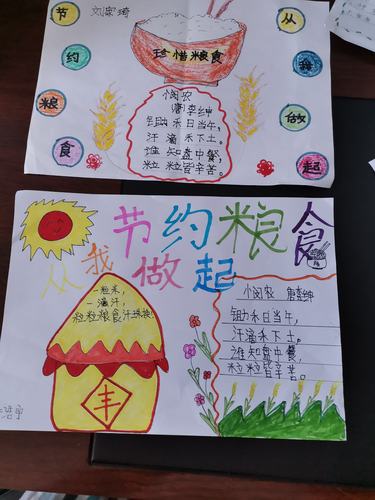 节约粮食
从我做起
珍惜粮食
悯农
唐李绅
锄禾日当午,
汗滴禾下土。
谁知盘中餐,
粒粒皆辛苦。
节约粮食
从我做起
一粒米,
一滴汗,
粒粒粮食汗珠换!
丰
悯农 唐李绅
锄禾日当午,
汗滴禾下土。
谁知盘中餐,
粒粒皆辛苦。